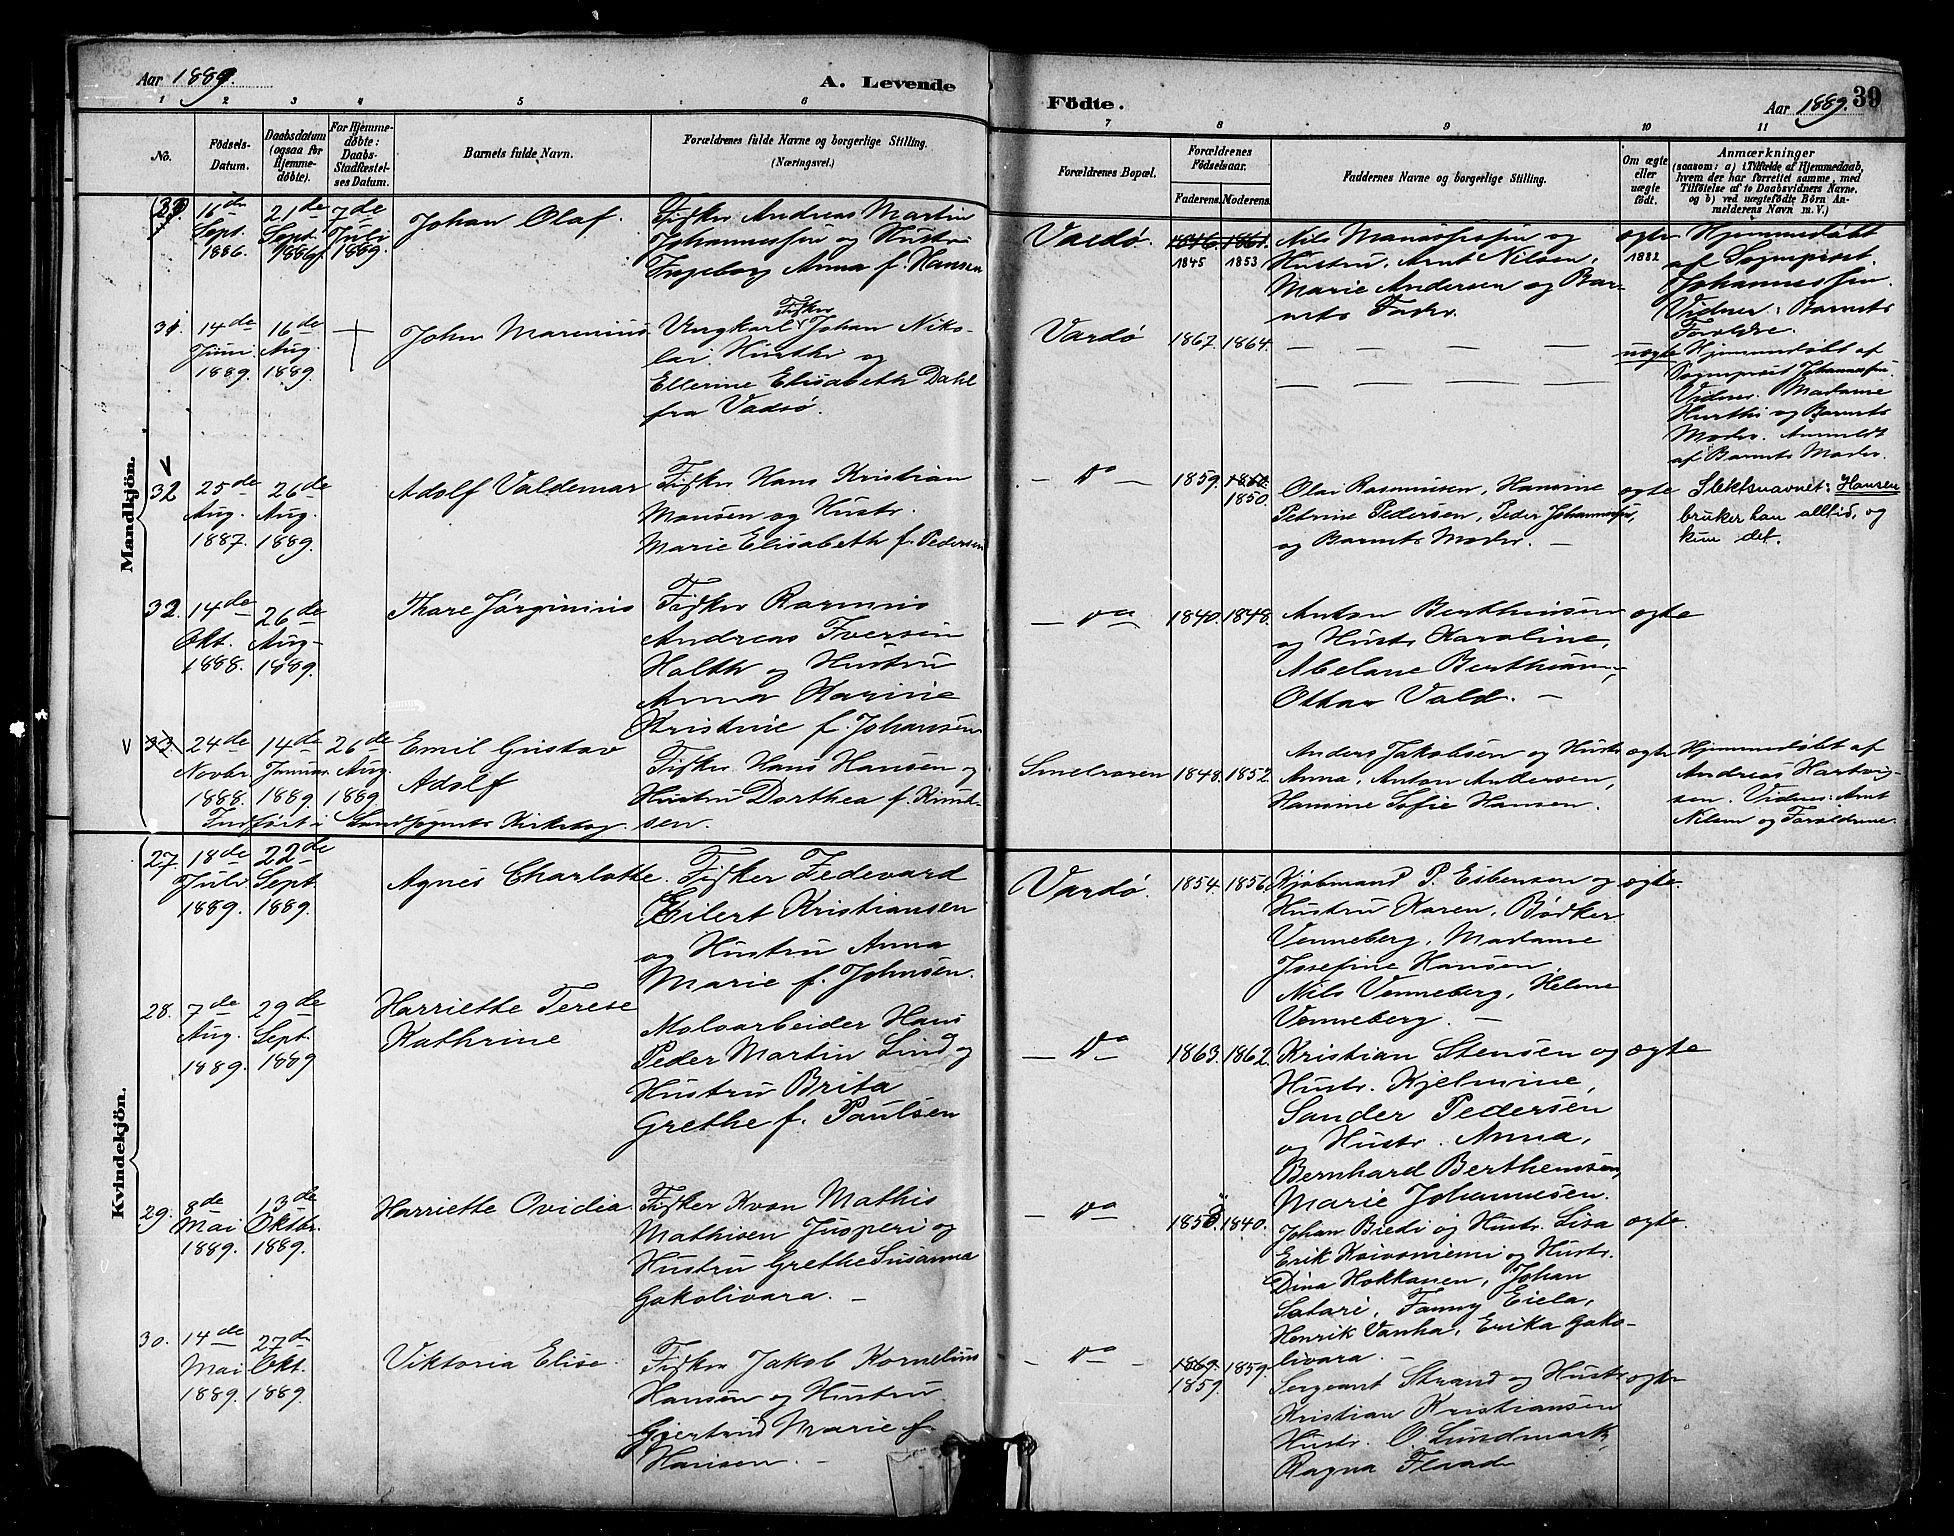 Aar 1889.
A. Levende
Födte.
Aar 1889. 39
1 2 3 4 5 6 7 8 9 10 11
No.
Födsels-
Datum.
Daabsdatum
(ogsaa for
Hjemme-
døbte).
For Hjemme-
døbte:
Daabs-
Stadfæstel-
ses Datum.
Barnets fulde Navn.
Forældrenes fulde Navne og borgerlige Stilling.
(Næringsvei.)
Forældrenes Bopæl.
Forældrenes
Födselsaar.
Faderens. Moderens.
Faddernes Navne og borgerlige Stilling.
Om ægte
eller
uægte
født.
Anmærkninger
(saasom: a) i Tilfælde af Hjemmedaab,
hvem der har forrettet samme, med
Tilföielse af to Daabsvidners Navne,
og b) ved uægtefödte Börn An-
melderens Navn m. V.)
Mandkjön.
16de
Sept.
1886.
21de
Sept.
1886
7de
Juli
1889.
Johan Olaf.
Fisker Andreas Martin
Johannessen og Hustru
Ingeborg Anna f. Hansen
Vardø.
1846. 1861.
1845 1853
Nils Manassesen og
Hustru, Arnt Nilsen,
Marie Andersen og Bar-
nets Fader.
ægte
1882
Hjemmedøbt
af Sogneprest
Johannessen.
Vidner: Barnets
Forældre.
31.
14de
Juni
1889.
16de
Aug.
1889.
John Marenius
Ungkarl Fisker Johan Niko-
lai Hurthi og
Ellerine Elisabeth Dahl
fra Vadsø.
Vardø
1867. 1864.
— — — —
— — — —
uægte
Hjemmedøbt af
Sogneprest Johannessen.
Vidner: Madame
Hurthi og Barnets
Moder. Anmeldt
af Barnets Moder.
32
25de
Aug.
1887.
26de
Aug.
1889.
Adolf Valdemar
Fisker Hans Kristian
Monsen og Hustr.
Marie Elisabeth f. Pedersen
— Do —
1859. 1860.
1850.
Olai Rasmussen, Hansine
Petrine Pedersen, Peder Johannessen,
og Barnets Moder. —
ægte
Slektsnavnet: Hansen
bruker han alltid, og
kun det.
32.
14de
Okt.
1888.
26de
Aug-
1889.
Thare Jørginius
Fisker Rasmus
Andreas Iversen
Holth og Hustru
Anna Karine
Kristine f. Johansen
— Do —
1840. 1848.
Anton Berthinsen
og Hustr Karoline,
Abelane Berthinsen,
Ottar Vald. —
ægte
V 33.
24de
Novbr
1888.
14de
Januar
1889.
26de
Aug.
1889.
Emil Gustav
Adolf
Fisker Hans Hansen og
Hustru Dorthea f. Knud-
sen.
Indført i Landsognets Kirkebog.
Smelroren
1848. 1852.
Anders Jakobsen og Hustr
Anna, Anton Andersen,
Hansine Sofie Hansen.
ægte
Hjemmedøbt af
Andreas Hartvig-
sen. Vidner: Arnt
Nilsen og Forældrene.
Kvindekjön.
27.
18de
Juli
1889.
22de
Sept
1889.
Agnes Charlotte.
Fisker Fedevard
Eilert Kristiansen
og Hustru Anna
Marie f. Johnsen.
Vardø.
1854. 1856.
Kjøbmand P. Esbensen og
Hustru Karen, Bødker
Venneberg, Madame
Josefine Hansen,
Nils Venneberg, Helene
Venneberg. —
ægte.
28.
7de
Aug.
1889.
29de
Sept.
1889
Harriette Terese
Kathrine
Moloarbeider Hans
Peder Martin Lind og
Hustru Brita
Grethe f. Paulsen
— Do —
1863. 1862.
Kristian Stensen og
Hustr. Kjelmine,
Sander Pedersen
og Hustr. Anna,
Bernhard Berthemsen,
Marie Johannesen.
ægte
29.
8de
Mai
1889.
13de
Oktbr.
1889.
Harriette Ovidia.
Fisker Kvon Mathis
Mathisen Jusperi og
Hustru Grethe Susanna
Gakolivara. —
— Do —
1850. 1840.
Johan Biedi og Hustr. Lisa
Erik Koivoniemi og Hustr.
Dina Hokkanen, Johan
Salari, Fanny Eiela,
Henrik Vanha, Erika Gako-
livara. —
ægte.
30.
14de
Mai
1889.
27de
Okt.
1889.
Viktoria Elise.
Fisker Jakob Kornelius
Hansen og Hustru
Gjertrud Marie f.
Hansen. —
— Do —
1869. 1859.
1859.
Sergeant Strand og Hustr
Kristian Kristiansen
Hustr. O. Lundmark,
Ragna Flaad
ægte